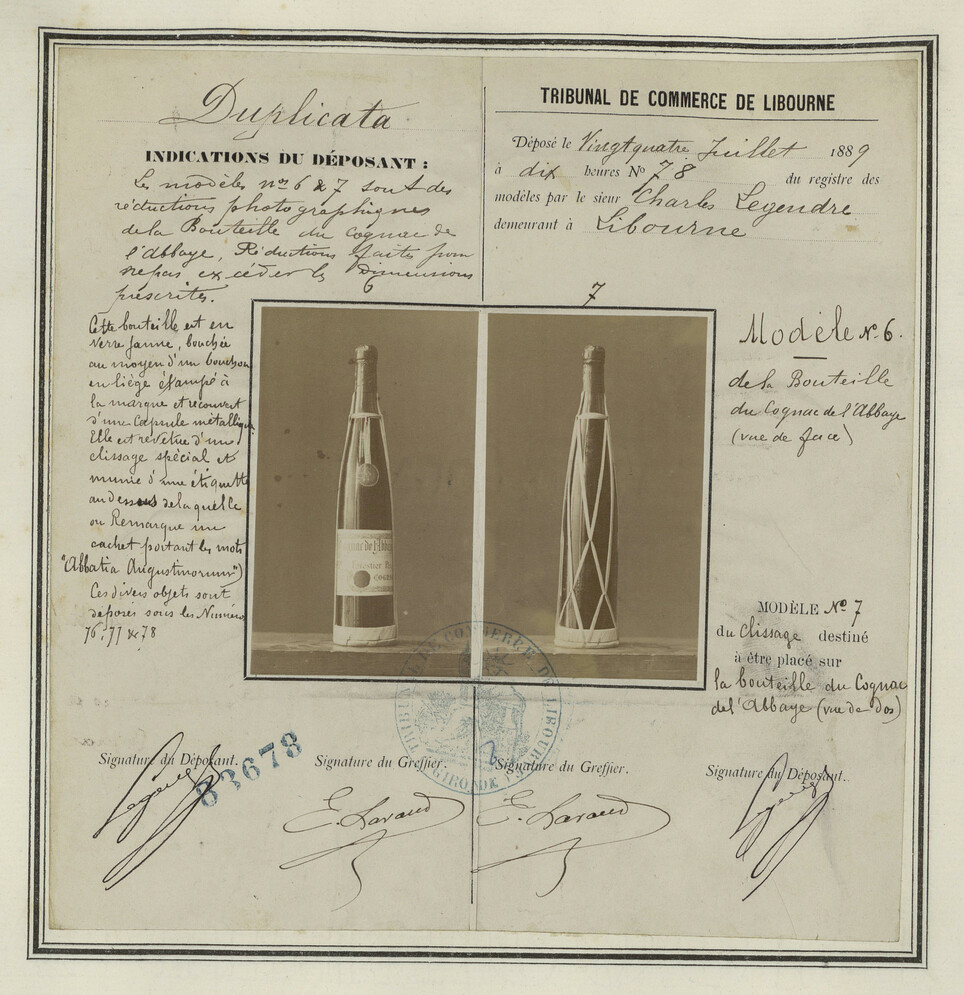 Duplicata
INDICATIONS DU DÉPOSANT :
Les modèles nos 6 & 7 sont des
réductions photographiques
de la Bouteille du Cognac de
l'Abbaye, Réductions faites pour
ne pas excéder les Dimensions
prescrites.
Cette bouteille est en
verre jaune, bouchée
au moyen d'un bouchon
en liège éstampé à
la marque et recouvert
d'une Capsule métallique.
Elle est revêtue d'un
clissage spécial et
munie d'une étiquette
au dessus de laquelle
on Remarque un
cachet portant les mots
"Abbatia Augustinorum")
Ces divers objets sont
déposés sous les Numéros
76, 77 & 78
TRIBUNAL DE COMMERCE DE LIBOURNE
Déposé le Vingt quatre Juillet 1889
à dix heures No 78 du registre des
modèles par le sieur Charles Legendre
demeurant à Libourne
6
7
Cognac de l'Abbaye
COGNAC
Modèle No 6.
de la Bouteille
du Cognac de l'Abbaye
(vue de face)
MODÈLE No 7
du Clissage destiné
à être placé sur
la bouteille du Cognac
de l'Abbaye (vue de Dos)
TRIBUNAL DE COMMERCE DE LIBOURNE
GIRONDE
Signature du Déposant.
83678
Signature du Greffier.
Signature du Greffier.
Signature du Déposant.
E. Lavaud
E. Lavaud